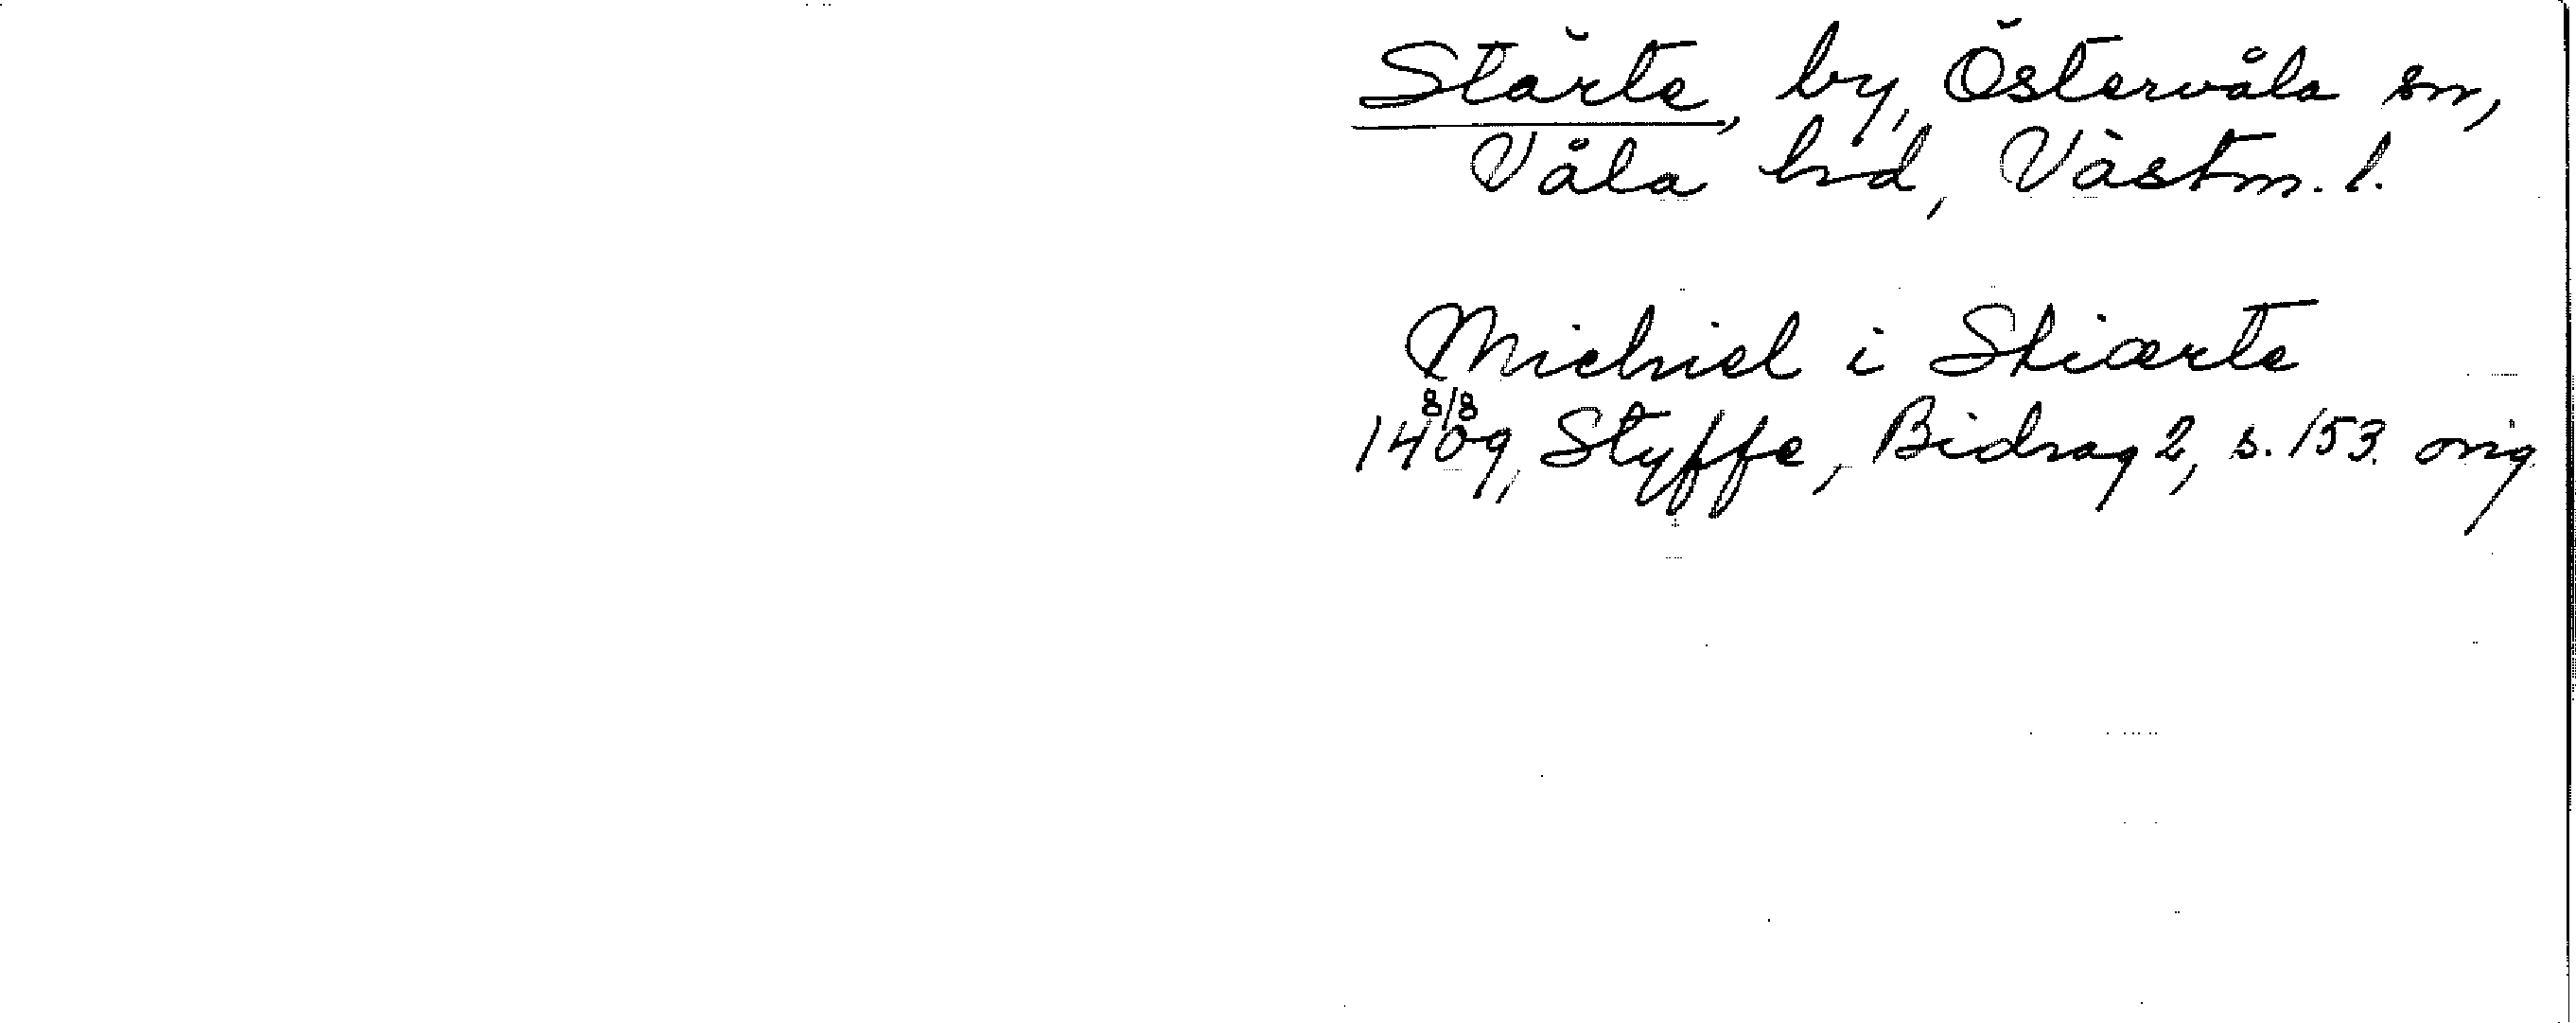 Stärte, by, Östervåla sn,
Våla hd, Västm. l.
Michiel i Stiærte
8/8
1409, Styffe, Bidrag 2, s. 153. orig.